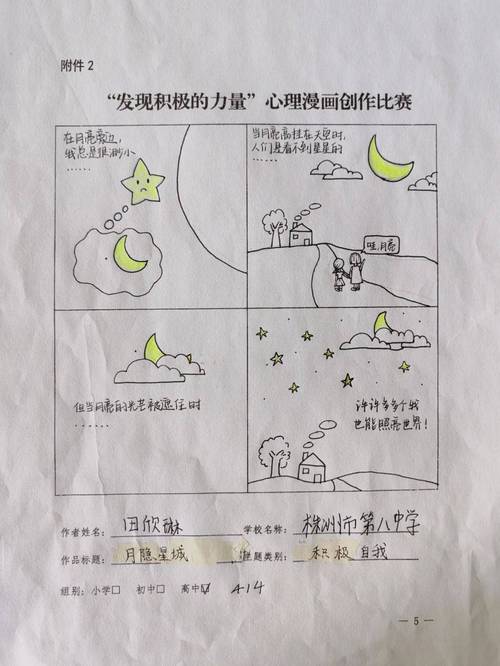 附件2
“发现积极的力量”心理漫画创作比赛
在月亮旁边,
我总是很渺小
......
当月亮高挂在天空时,
人们是看不到星星的
......
哇,月亮
但当月亮的光芒被遮住时
......
许许多多个我
也能照亮世界!
作者姓名: 田欣琳 学校名称: 株洲市第八中学
作品标题: 月隐星城 主题类别: 积极自我
组别:小学□ 初中□ 高中☑ A14
— 5 —